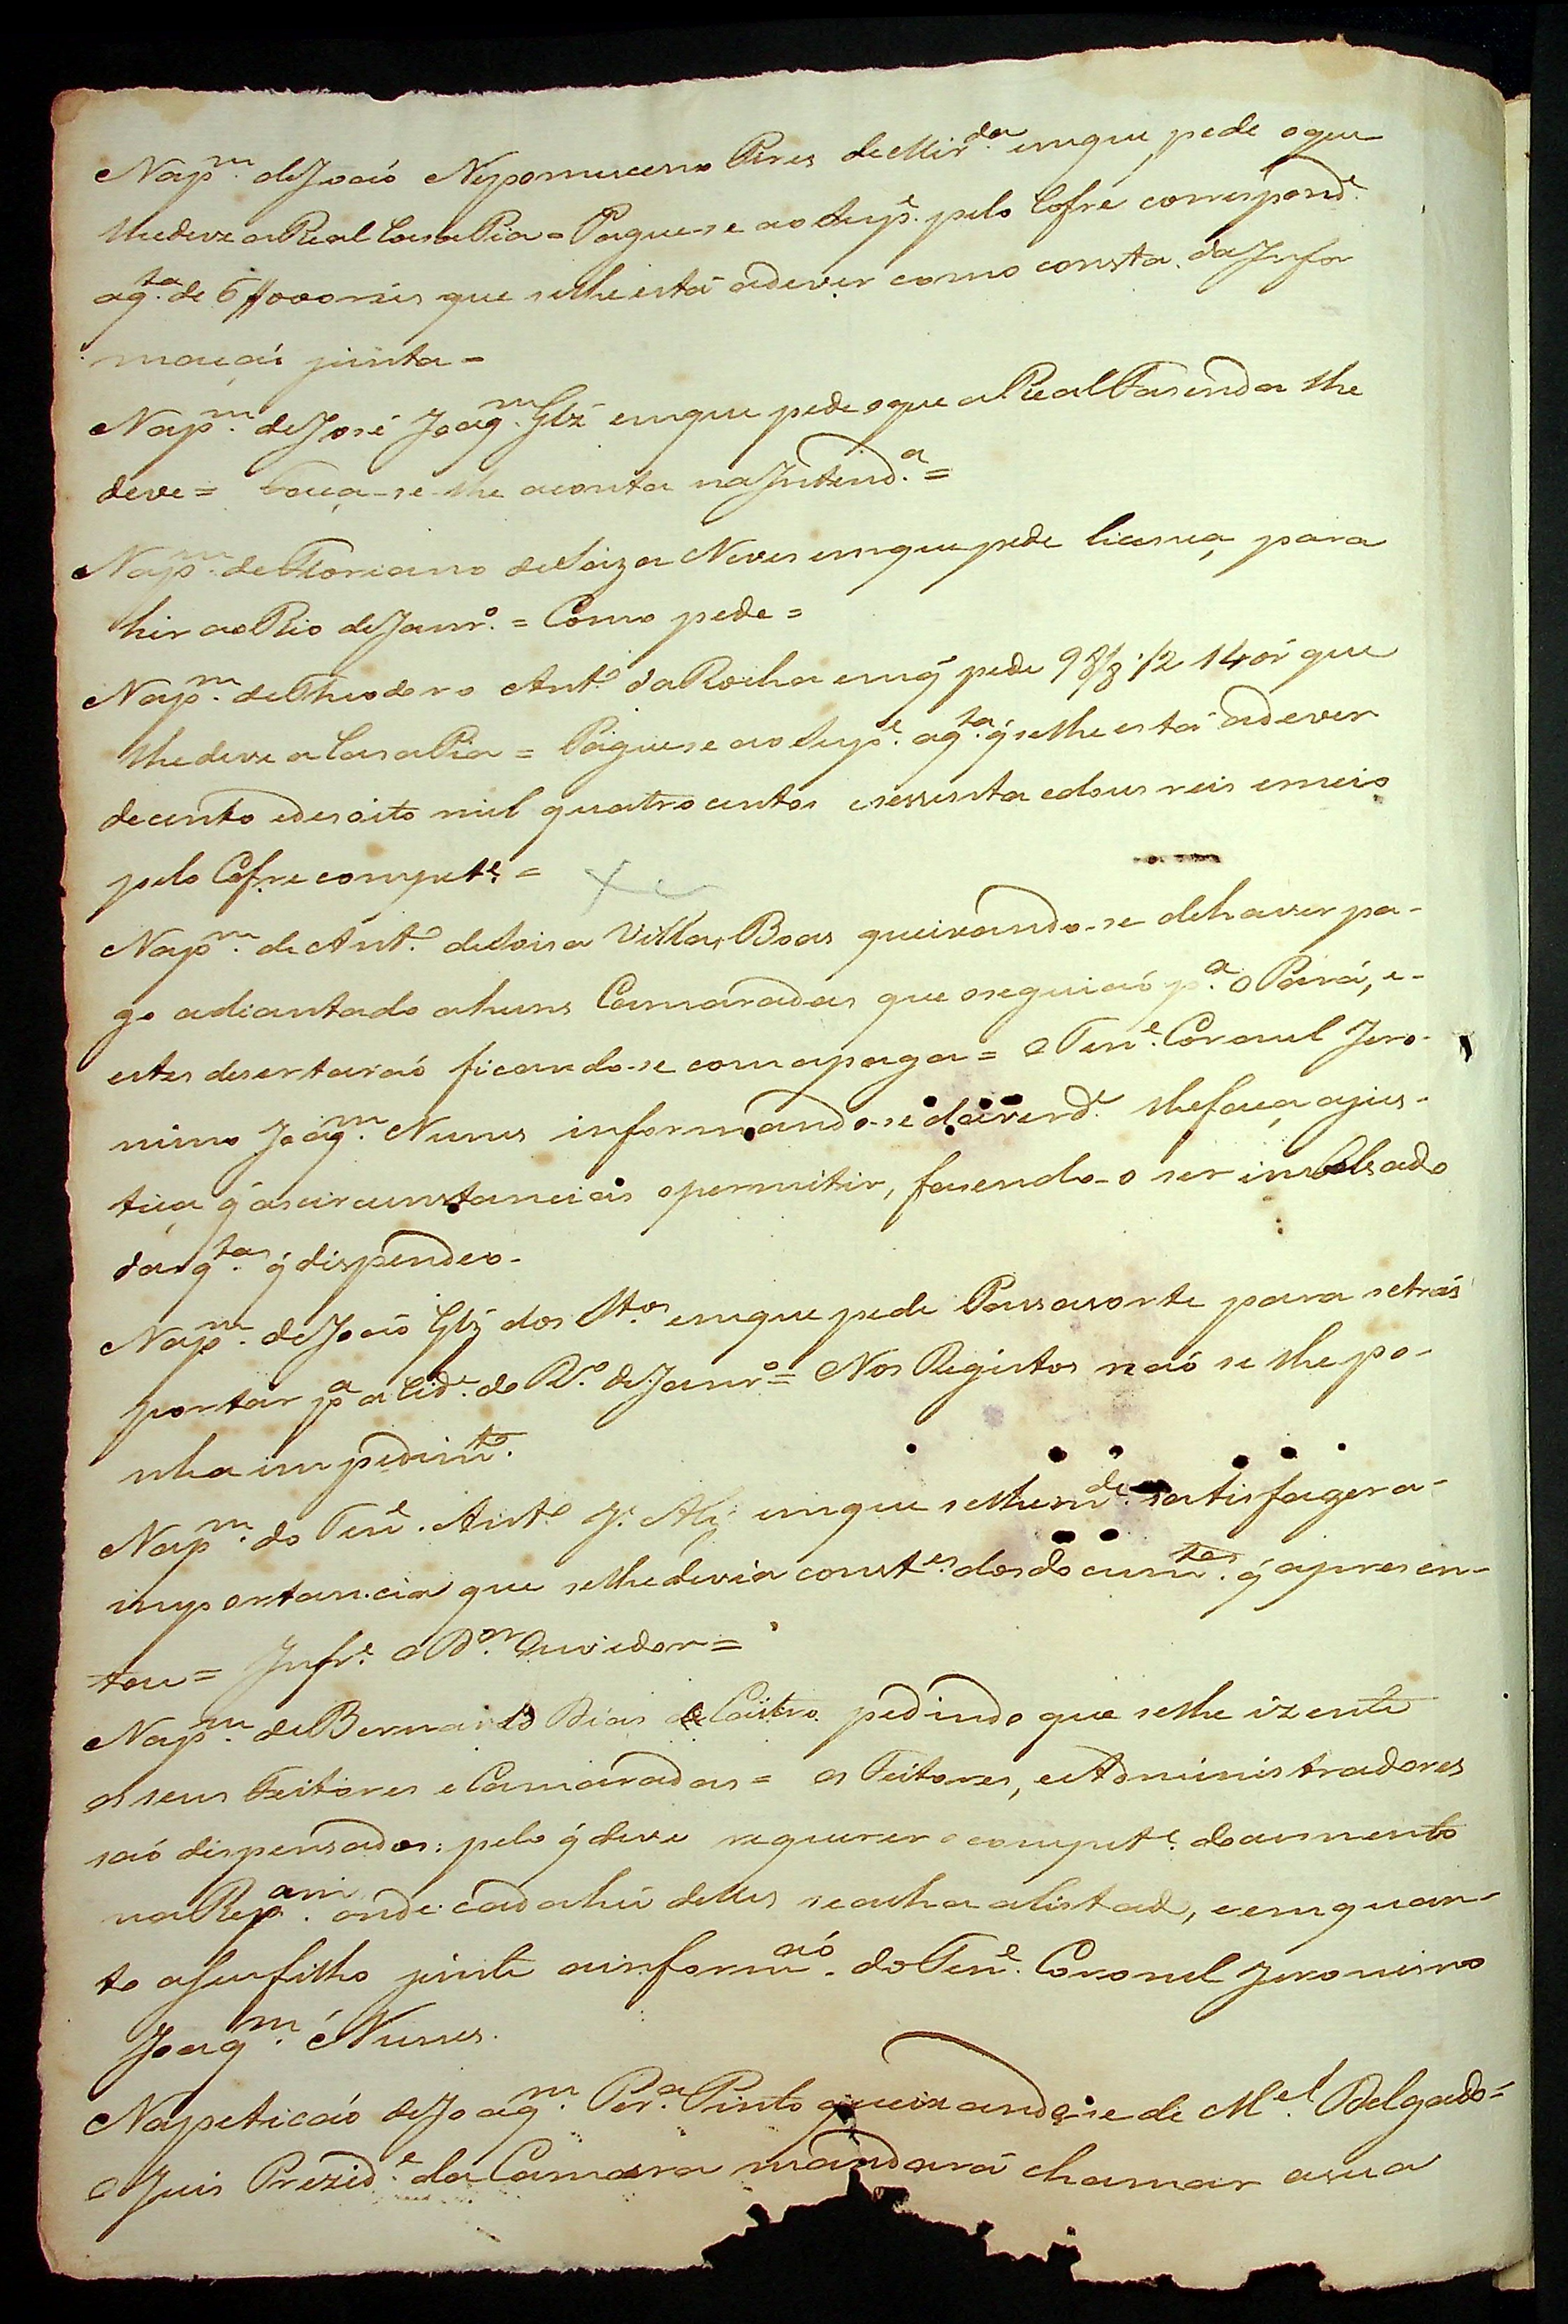 Na p.m de João Nepomuceno Pires de Mir.da em que pede o que
lhe deve a Real Casa Pia = Pague-se ao Sup.e pelo Cofre correspond.e
a q.ta de 6//000 reis que se lhe está a dever como consta da Infor
mação junta =
Na p.m de José Joaq.m Glz em que pede o que a Real Fasenda lhe
deve = Faça-se-lhe a conta na Intend.a =
Na p.m de Floriano de Soiza Neves em que pede licença para
hir ao Rio de Janr.o = Como pede =
Na p.m de Theodoro Ant.o da Rocha em q̃ pede 98/8 1/2 140r̃ que
lhe deve a Casa Pia = Pague-se ao Sup.e a q.ta q̃ se lhe está a dever
de cento e desoito mil quatro centos e sessenta e dous reis e meio
pelo Cofre compet.e =
Na p.m de Ant.o de Soisa Villas Boas queixando-se de haver pa-
go adiantado a huns Camaradas que o seguião p.a o Pará, e-
estes desertarão ficando-se com a paga = O Ten.e Coronel Jero-
nimo Joaq.m Nunes informando-se da verd.e lhe faça a jus-
tiça q̃ as circunstancias o permitir, fasendo-o ser imbolsado
da q.ta q̃ dispendeo-
Na p.m de João Glz dos St.os em que pede Passaporte para se trãs
portar p.a a Cid.e do R.o de Janr.o = Nos Registos não se lhe po-
nha impedim.to
Na p.m do Ten.e Ant.o J.e Alz em que se lhe m.de satisfazer a-
importancia que se lhe devia const.es dos docum.tos q̃ apresen-
tou = Infr.e o D.or Ouvidor =
Na p.m de Bernardo Dias de Castro pedindo que se lhe izente
os seus Feitores e Camaradas = os Feitores, e Administradores
são dispensados: pelo q̃ deve requerer o compet.e documento
na Rep.am onde cada hũ delles se acha alistad, e em quan-
to a seu filho junte a inform.ão do Ten.e Coronel Jeronimo
Joaq.m Nunes.
Na petição de Joaq.m Per.a Pinto queixando-se de M.el Delgado =
O Juis Prezid.e da Camara mandará chamar a sua